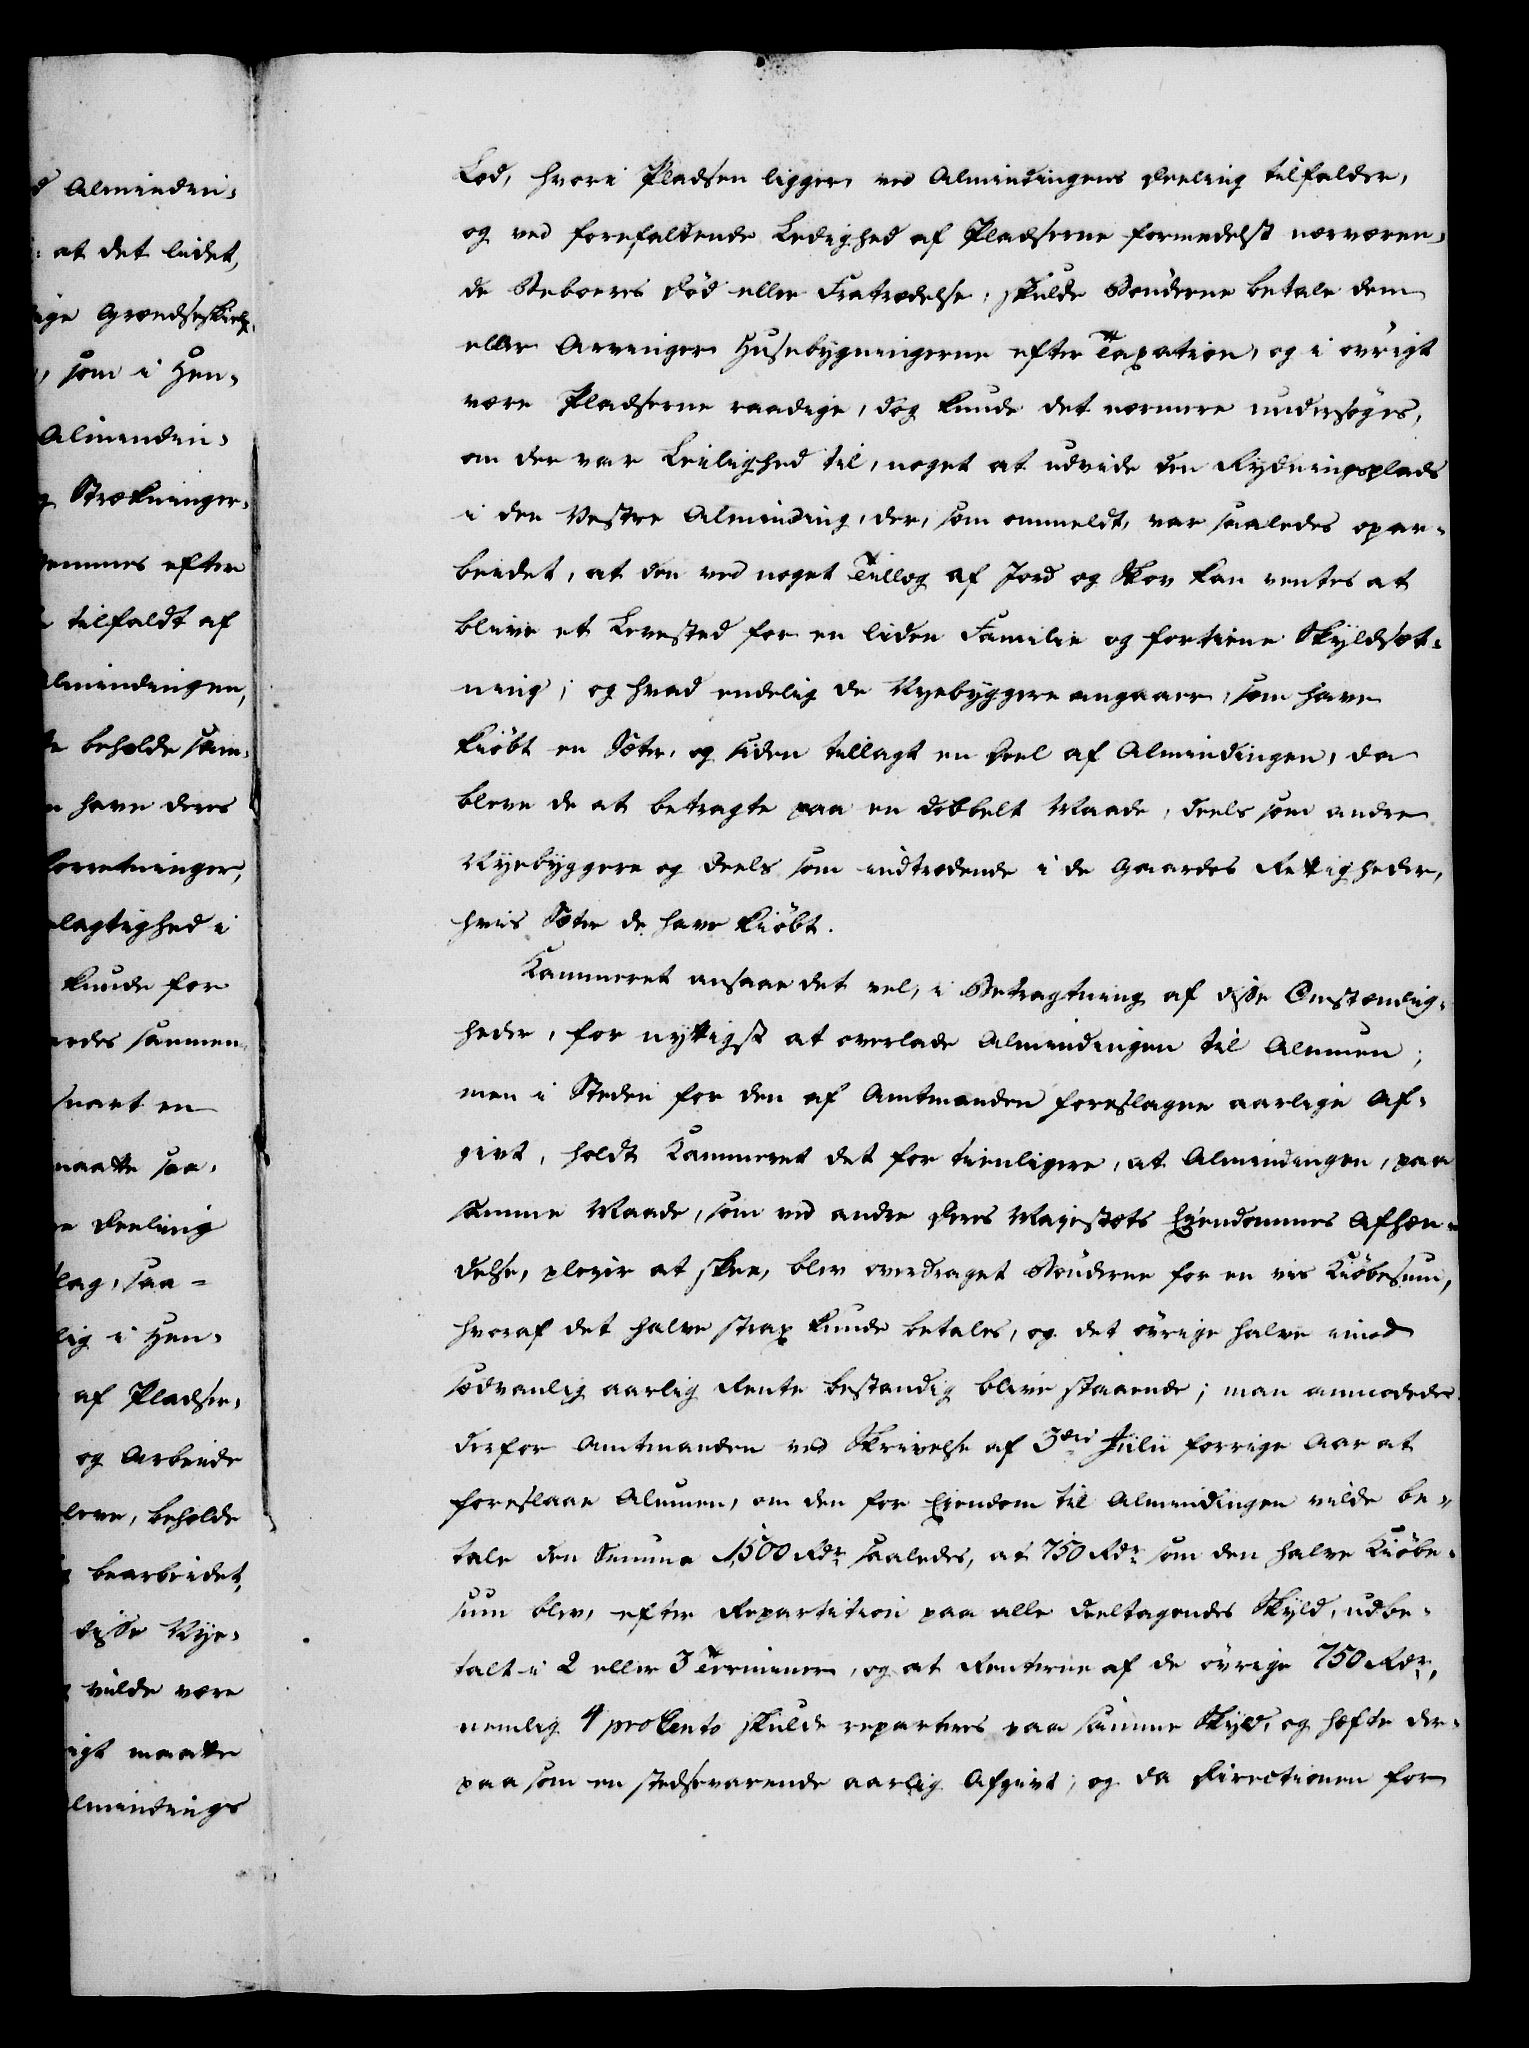 d Almindin-
: at det lidet,
ige Grændseskiels,
, som i Hen-
Almindin-
g Strækninger,
temmes efter
tilfaldt af
Almindingen,
te beholde sam-
n have deres
forretninger,
elagtighed i
kunde for
ardes sammen
snart en
maatte saa-
e Deeling
slag, saa-
lig i Hen-
af Pladser,
og Arbeide
leve, beholde
g bearbeidet,
disse Nye-
g vilde være
igt maatte
Almindings
Lod, hvori Pladsen ligger, ved Almindingens Deeling tilfalder,
og ved forefaldende Ledighed af Pladserne formedelst nærværen-
de Beboeres Død eller Fratrædelse, skulde Bønderne betale dem
eller Arvinger Husebygningerne efter Taxation, og i øvrigt
være Pladserne raadige, dog kunde det nærmere undersøges,
om der var Leilighed til, noget at udvide den Rydningsplads
i den Vestre Alminding, der, som ommeldt, var saaledes opar-
beidet, at den ved noget Tillæg af Jord og Skov kan ventes at
blive et Levested for en liden Familie og fortiene Skyldsæt-
ning; og hvad endelig de Nyebyggere angaaer, som have
kiøbt en Sæter, og siden tillagt en Deel af Almindingen, da
bleve de at betragte paa en dobbelt Maade, deels som andre
Nyebyggere og deels som indtrædende i de Gaardes Rettigheder,
hvis Sæter de have kiøbt.
Kammeret ansaae det vel, i Betragtning af disse Omstændig-
heder, for nyttigst at overlade Almindingen til Almuen;
men i Steden for den af Amtmanden foreslagne aarlige Af-
givt, holdt Kammeret det for tienligere, at Almindingen, paa
samme Maade, som ved andre Deres Majestæts Eiendommes Afhæn-
delse, pleier at skee, blev overdraget Bønderne for en vis Kiøbesum,
hvoraf det halve strax kunde betales, og det øvrige halve imod
sædvanlig aarlig Rente bestandig blive staaende; man anmodede
derfor Amtmanden ved Skrivelse af 3die Julii forrige Aar at
foreslaae Almuen, om den for Eiendom til Almindingen vilde be-
tale den Summa 1500 Rdr saaledes, at 750 Rdr som den halve Kiøbe-
sum blev, efter Repartition paa alle deeltagendes Skyld, udbe-
talt i 2 eller 3 Terminer, og at Renterne af de øvrige 750 Rdr,
nemlig 4 pro Cento skulde reparteres paa samme Skyld, og hæfte der-
paa som en stedsevarende aarlig Afgivt; og da Directionen for